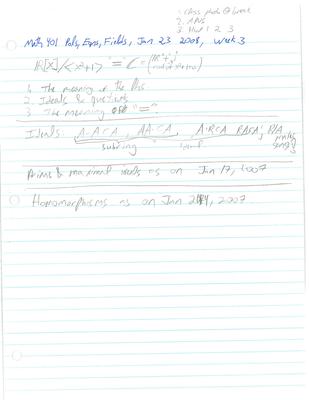 1. Class photo @ break
2.
3. HW 1 2 3
Math 401 Polys, Eqns, Fields, Jan 23 2008, Week 3
ℝ[x]/<x²+1> "=" ℂ =
1. The meaning of the
2. Ideals & quotients
3. The meaning of "=".
Ideals: A-A⊂A, AA⊂A, A·R⊂A
subring ideal
Primes & maximal ideals as on Jan 17, 2007
Homomorphisms as on Jan 24, 2007.